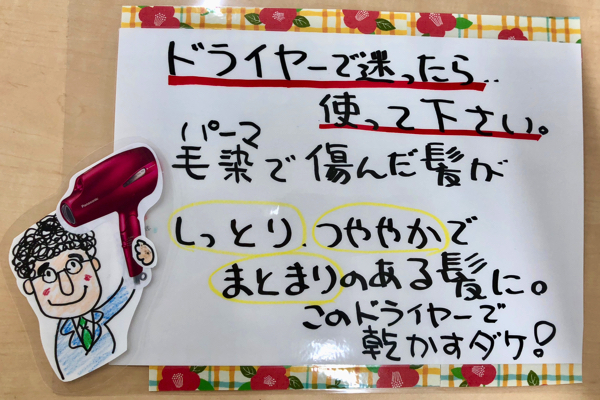 ドライヤーで迷ったら...
使って下さい。
パーマ
毛染で傷んだ髪が
しっとり、つややかで
まとまりのある髪に。
このドライヤーで
乾かすダケ!
Panasonic